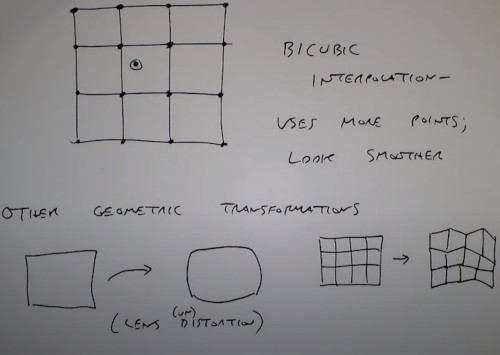 BICUBIC
INTERPOLATION-
USES MORE POINTS;
LOOK SMOOTHER
OTHER GEOMETRIC TRANSFORMATIONS
(LENS (UN)DISTORTION)